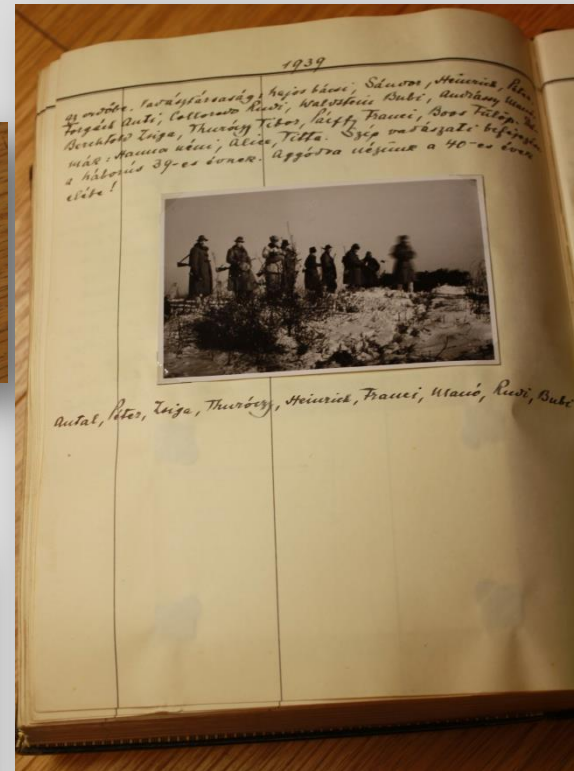 1939
az erdőbe. Vadásztársaság: Lajos bácsi, Sándor, Heinrich, Péter,
Forgách Anti, Colloredo Rudi, Waldstein Bubi, Andrássy Manó,
Berchtold Zsiga, Thuróczy Tibor, Pálffy Franci, Boos Fülöp.
mák: Hanna néni, Alice, Titta. Szép vadászati befejezése
a háborús 39-es évnek. Aggódva nézünk a 40-es évek
elébe!
Antal, Péter, Zsiga, Thuróczy, Heinrich, Franci, Manó, Rudi, Bubi